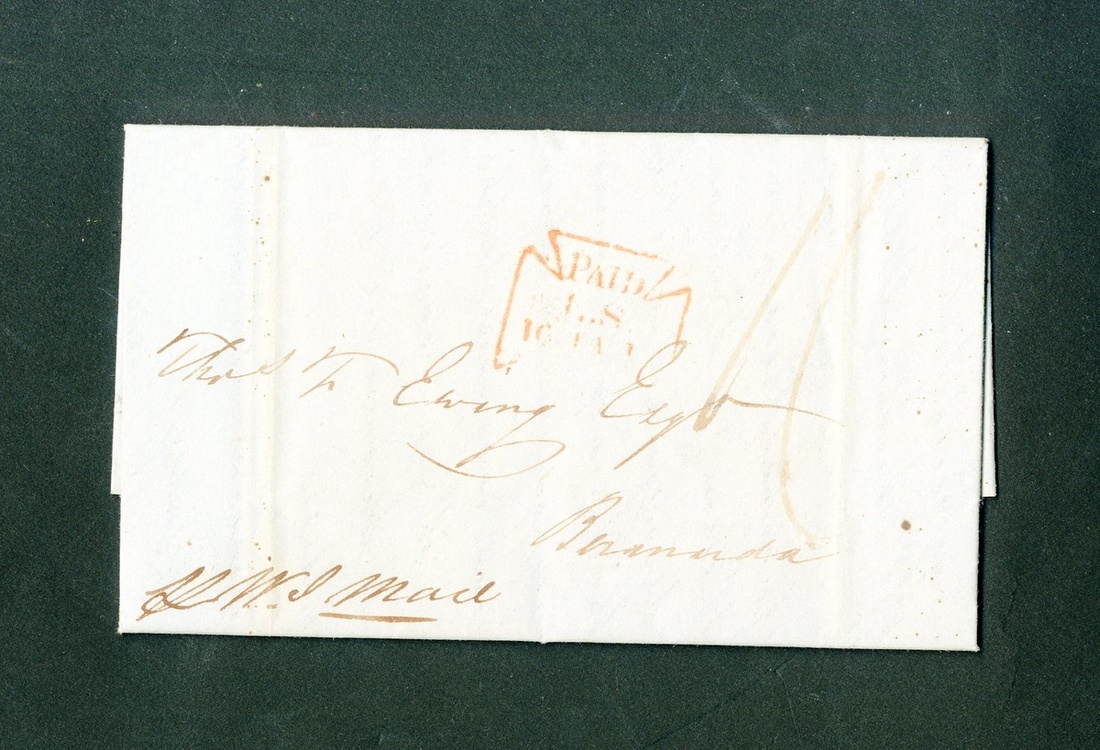 PAID
LS
16
Thos T Ewing Esqr
Bermuda
W.I Mail